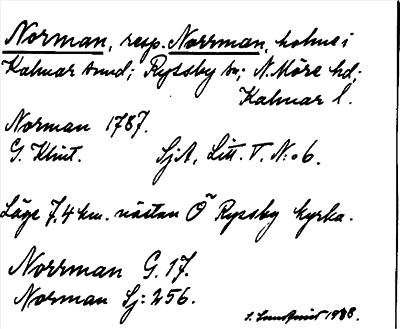 Norman, resp. Norrman, holme i
Kalmar sund; Ryssby sn; N. Möre hd;
Kalmar l.
Norman 1787.
G. Klint. SjA, Litt. V. N:o 6.
Läge 7,4 km. nästan Ö Ryssby kyrka.
Norrman G. 17.
Norman Sj: 256.
1988.